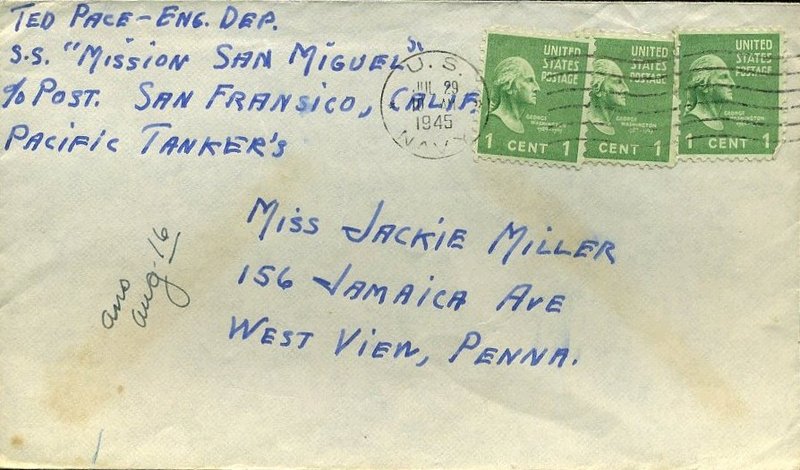 TED PACE - ENG. DEP.
S.S. "MISSION SAN MIGUEL"
c/o POST. SAN FRANSICO, CALIF.
PACIFIC TANKER'S
U.S.
JUL 29
1945
NAVY
UNITED STATES POSTAGE
GEORGE WASHINGTON
1 CENT 1
UNITED STATES POSTAGE
GEORGE WASHINGTON
1 CENT 1
UNITED STATES POSTAGE
GEORGE WASHINGTON
1 CENT 1
MISS JACKIE MILLER
156 JAMAICA AVE
WEST VIEW, PENNA.
ans
aug-16